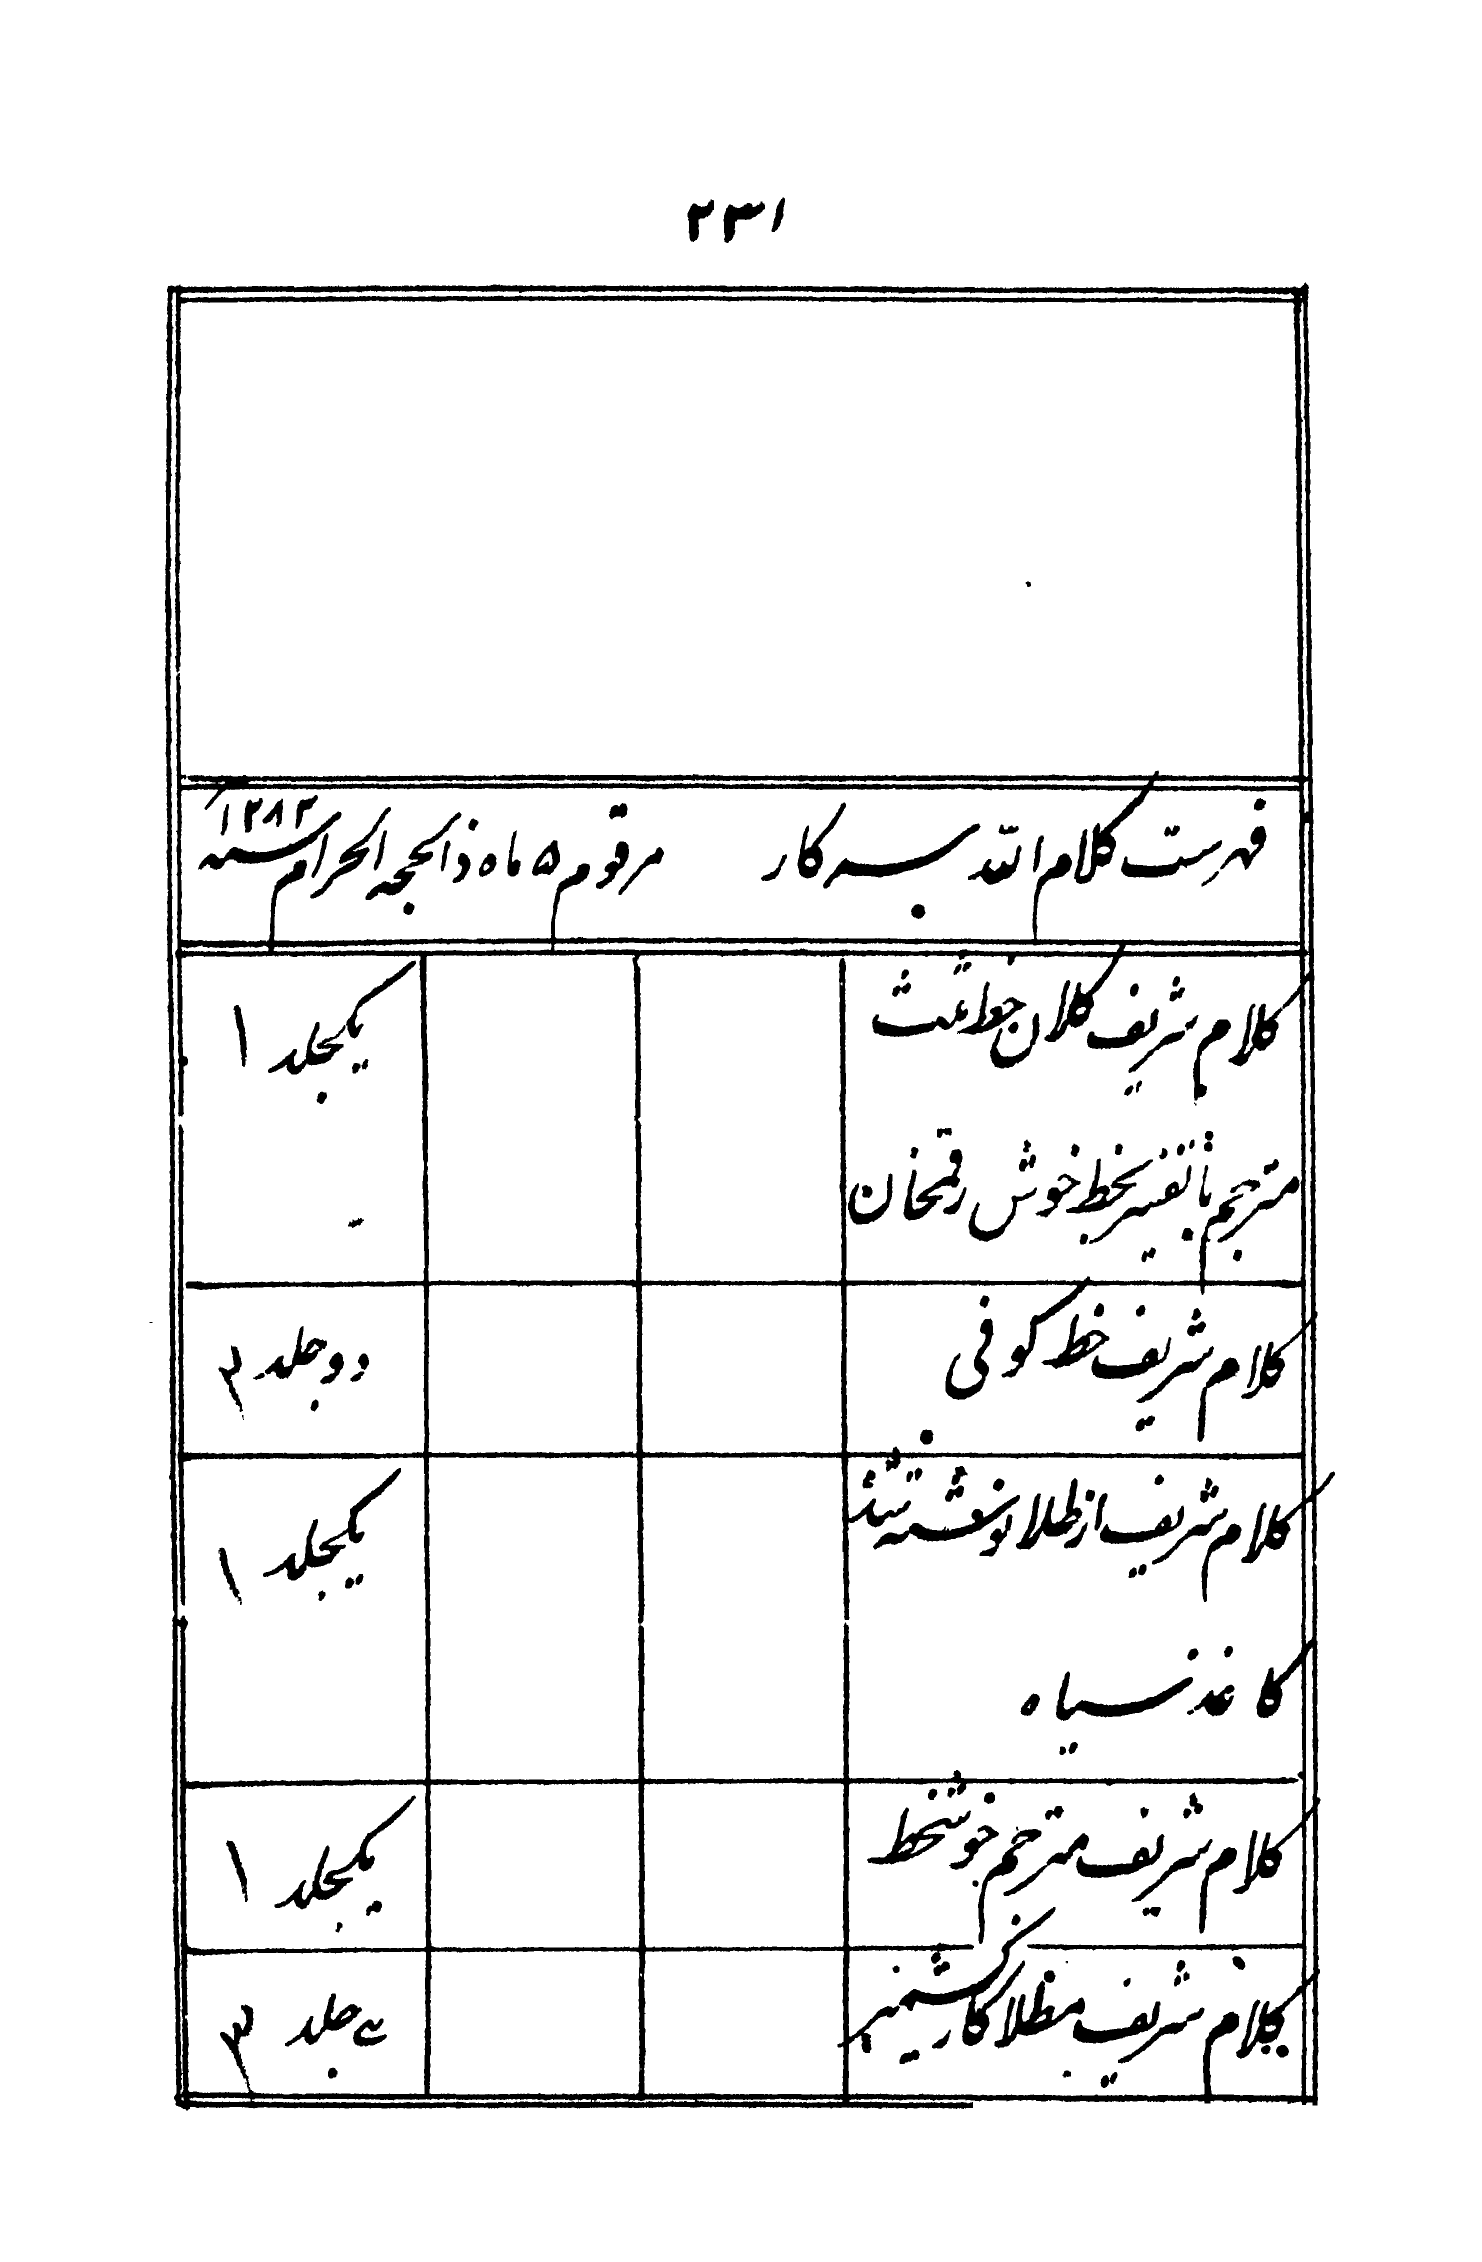 ٢٣١
فهرست کلام الله به سرکار مرقوم ۵ ماه ذالحجه الحرام سنه ١٢٨٢
کلام شریف کلان خط ثلث یکجلد ١
مترجم با تفسیر بخط خوش رقمخان
کلام شریف خط کوفی دو جلد ٢
کلام شریف از طلا نوشته شد یکجلد ١
کاغذ سیاه
کلام شریف مترجم خوشخط یکجلد ١
کلام شریف مطلا کار کشمیر سه جلد ٣